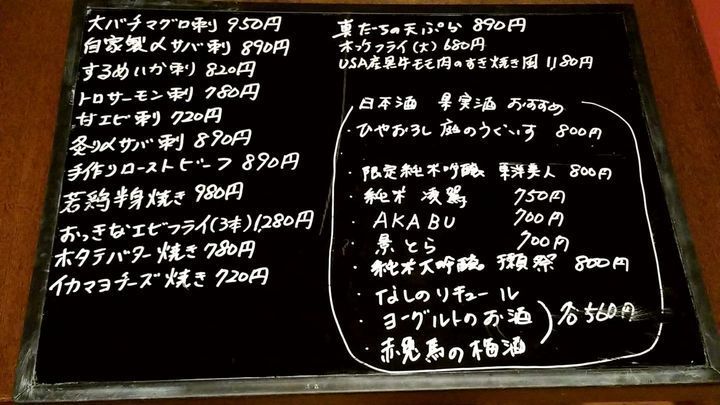 大バチマグロ刺 950円
自家製〆サバ刺 890円
するめいか刺 820円
トロサーモン刺 780円
甘エビ刺 720円
炙り〆サバ刺 890円
手作りローストビーフ 890円
若鶏半身焼き 980円
おっきなエビフライ(3本) 1,280円
ホタテバター焼き 780円
イカマヨチーズ焼き 720円
真だちの天ぷら 890円
ホッケフライ(大) 680円
USA産黒牛モモ肉のすき焼き風 1,180円
日本酒 果実酒 おすすめ
・ひやおろし 庭のうぐいす 800円
・限定純米吟醸 東洋美人 800円
・純米 750円
・AKABU 700円
・景とら 700円
・純米大吟醸 獺祭 800円
・なしのリキュール
・ヨーグルトのお酒 各560円
・赤兎馬の梅酒